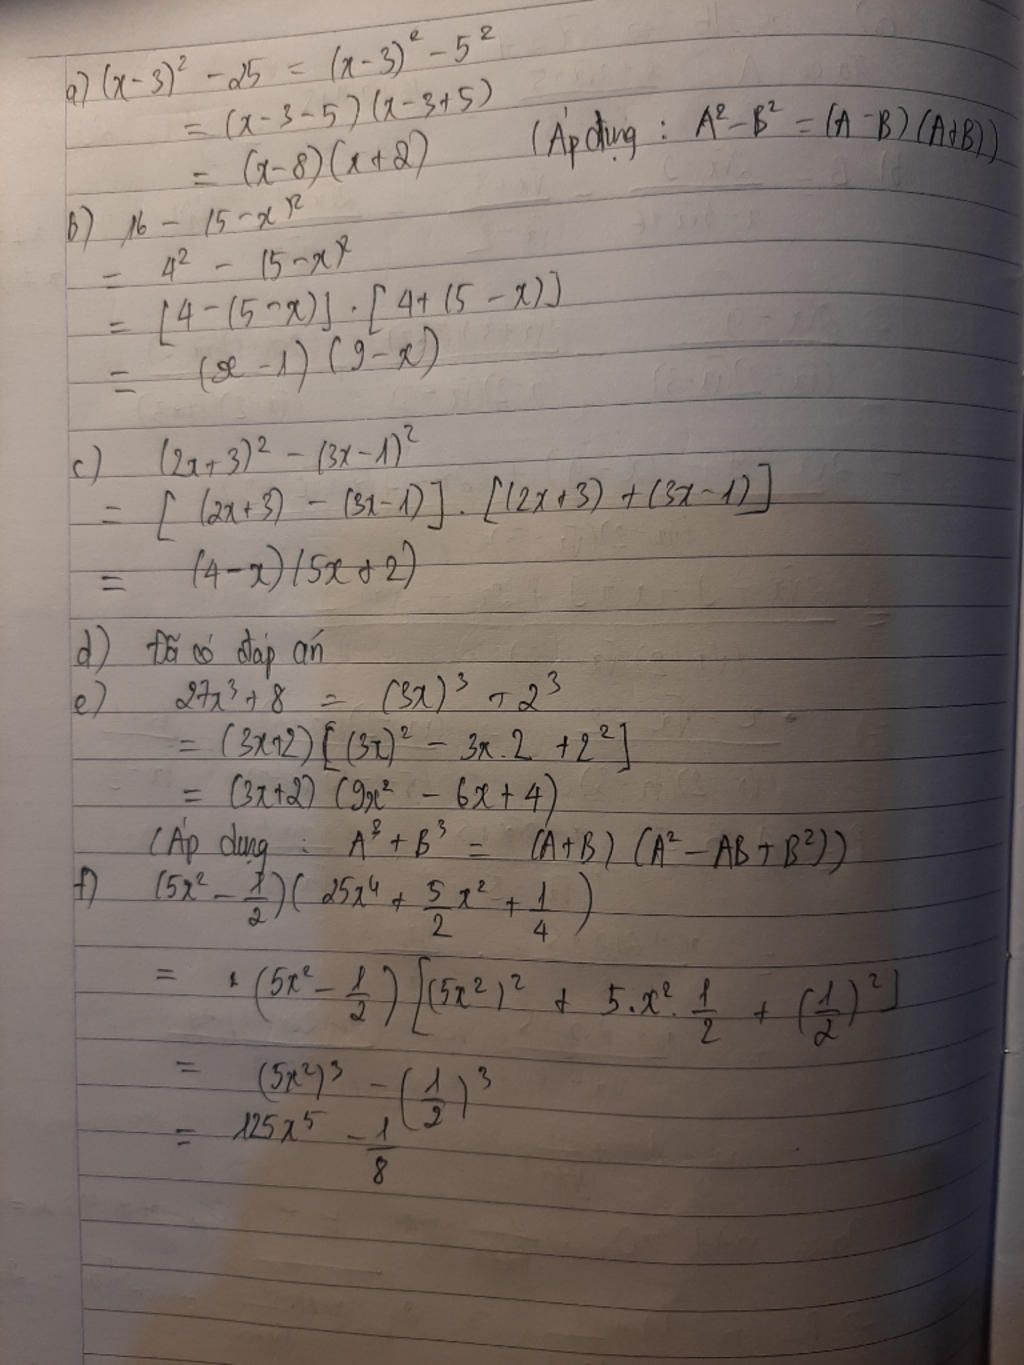 a) (x-3)² - 25 = (x-3)² - 5²
= (x-3-5)(x-3+5)
= (x-8)(x+2) (Áp dụng : A² - B² = (A-B)(A+B))
b) 16 - (5-x)²
= 4² - (5-x)²
= [4-(5-x)] . [4+(5-x)]
= (x-1)(9-x)
c) (2x+3)² - (3x-1)²
= [(2x+3) - (3x-1)] . [(2x+3) + (3x-1)]
= (4-x)(5x+2)
d) Đã có đáp án
e) 27x³ + 8 = (3x)³ + 2³
= (3x+2)[(3x)² - 3x.2 + 2²]
= (3x+2)(9x² - 6x + 4)
(Áp dụng : A³ + B³ = (A+B)(A² - AB + B²))
f) (5x² - 1/2)(25x⁴ + 5/2 x² + 1/4)
= (5x² - 1/2)[(5x²)² + 5.x².1/2 + (1/2)²]
= (5x²)³ - (1/2)³
= 125x⁵ - 1/8